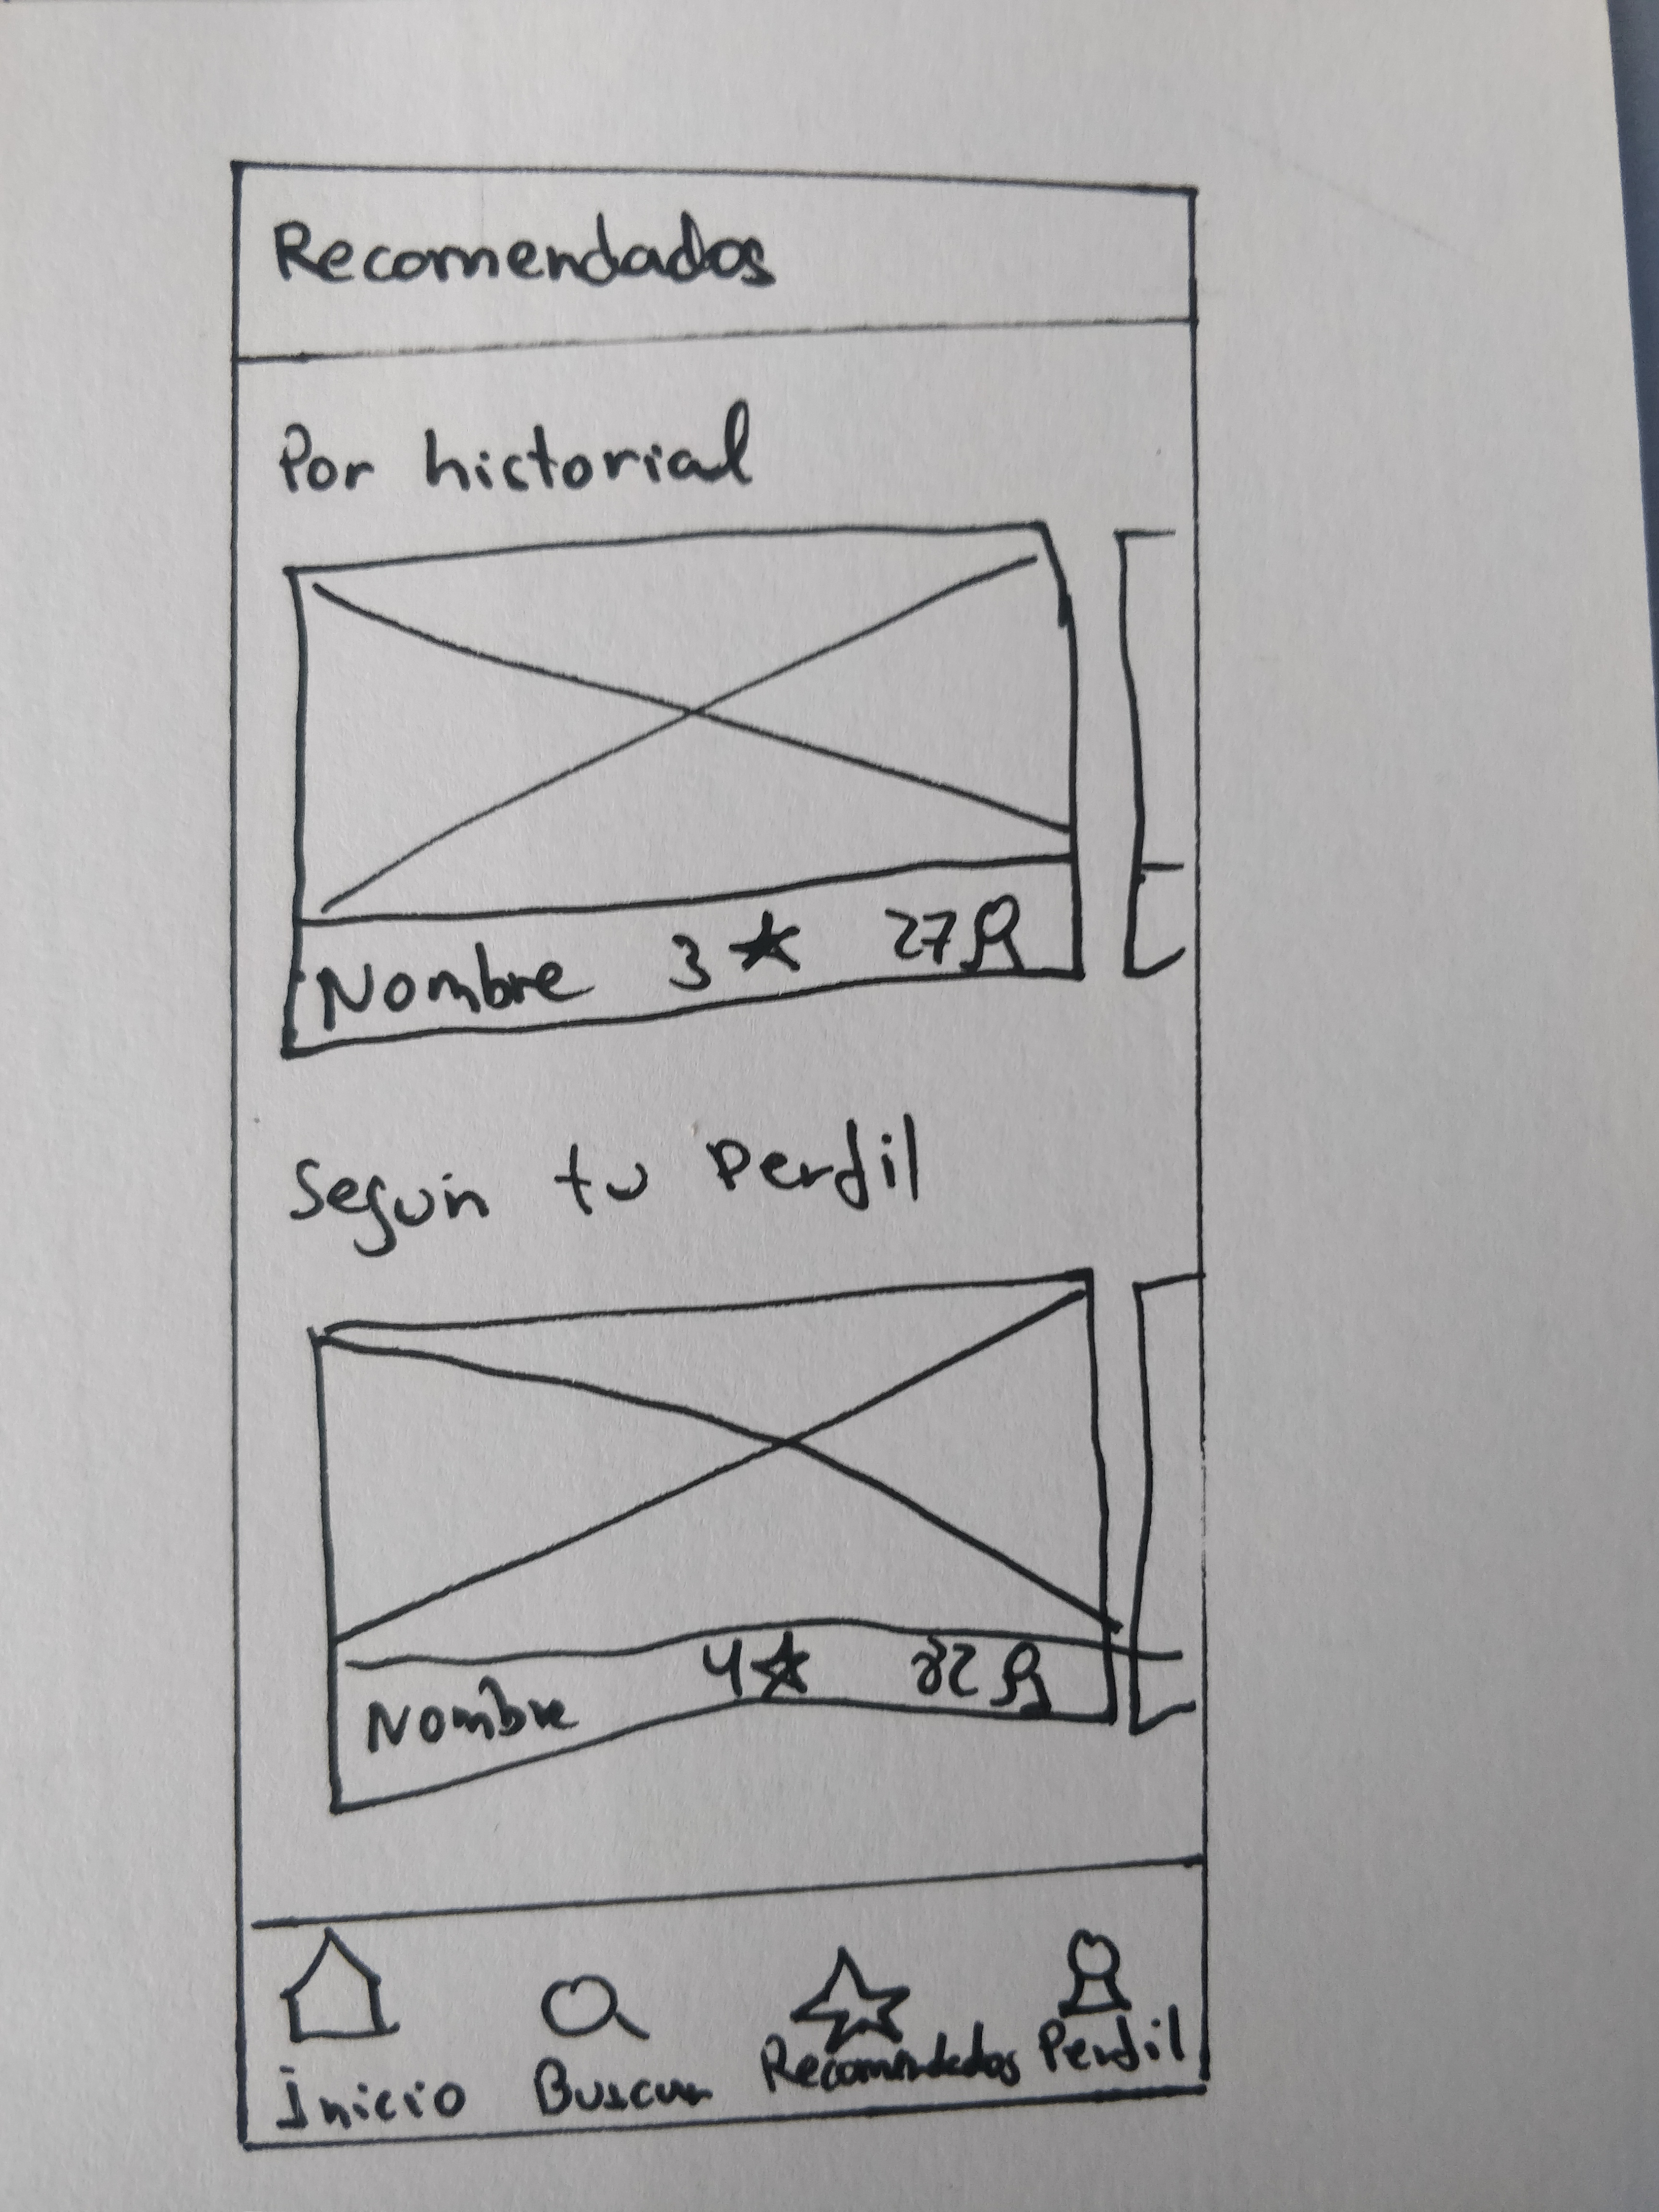 Recomendados
Por historial
Nombre 3 27
Según tu Perfil
Nombre 4 82
Inicio Buscar Recomendados Perfil